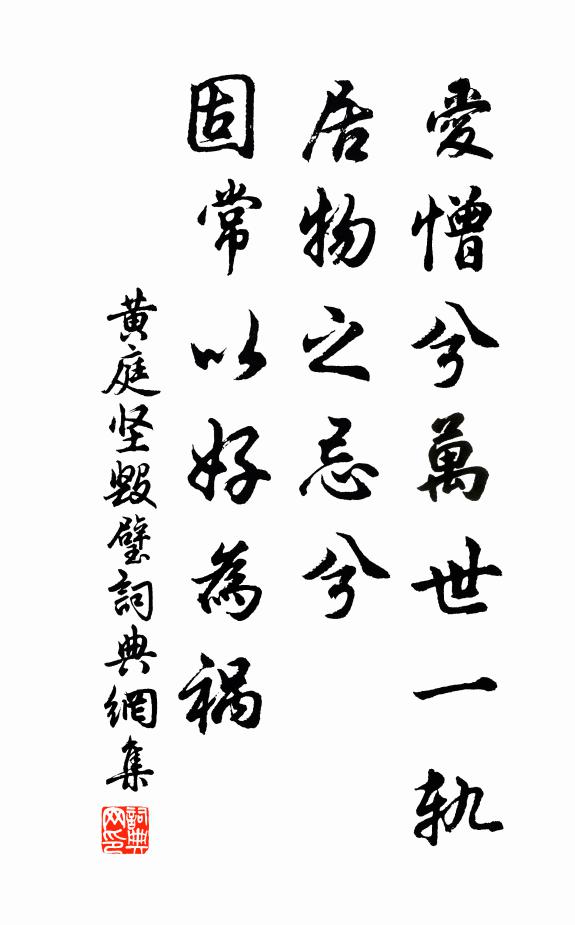 愛憎兮萬世一軌
居物之忌兮
固常以好為禍
黄庭坚毀璧詞典網集
詞典网印